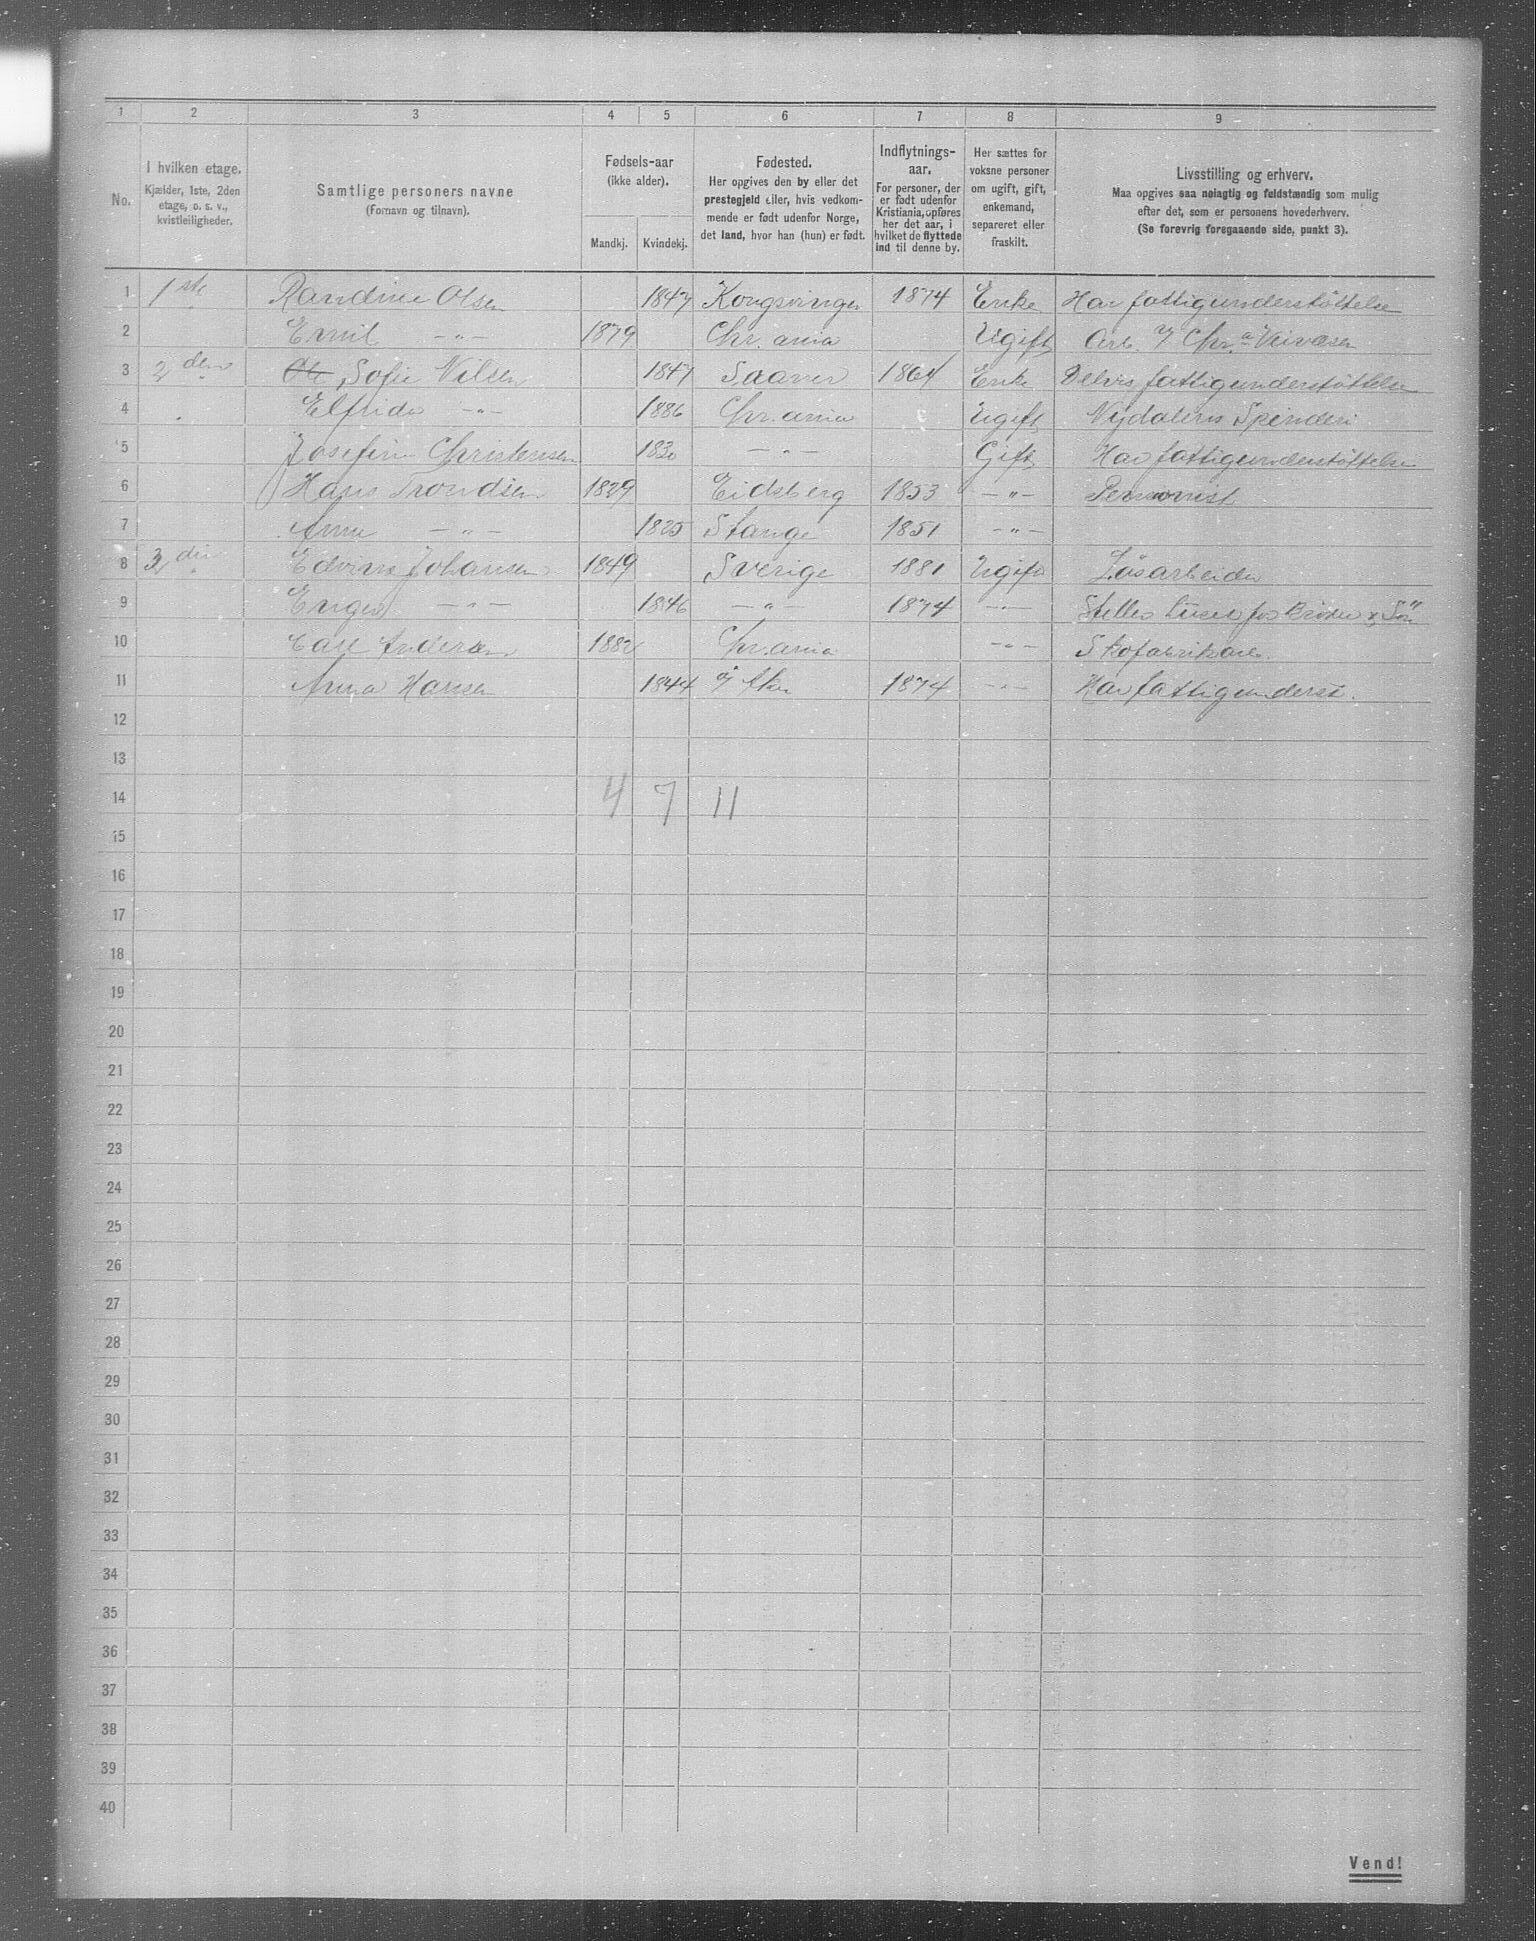 1 2 3 4 5 6 7 8 9
No.
I hvilken etage.
Kjælder, 1ste, 2den
etage, o. s. v.,
kvistleiligheder.
Samtlige personers navne
(Fornavn og tilnavn).
Fødsels-aar
(ikke alder).
Mandkj. Kvindekj.
Fødested.
Her opgives den by eller det
prestegjeld eller, hvis vedkom-
mende er født udenfor Norge,
det land, hvor han (hun) er født.
Indflytnings-
aar.
For personer, der
er født udenfor
Kristiania, opføres
her det aar, i
hvilket de flyttede
ind til denne by.
Her sættes for
voksne personer
om ugift, gift,
enkemand,
separeret eller
fraskilt.
Livsstilling og erhverv.
Maa opgives saa nøiagtig og fuldstændig som mulig
efter det, som er personens hovederhverv.
(Se forøvrig foregaaende side, punkt 3).
1 1ste Randine Olsen 1847 Kongsvinger 1874 Enke Har fattigunderstøttelse
2 Emil -"- 1879 Chr.ania Ugift Arb. Chr.a
3 2den Sofie Nilsen 1847 1864 Enke Delvis fattigunderstøttelse
4 Elfrida -"- 1886 Chr.ania Ugift Nydalens Spinderi
5 Josefine Christensen 1830 -"- Gift Har fattigunderstøttelse
6 Hans Trondsen 1829 Eidsberg 1853 -"- Pensionist
7 Anne -"- 1825 Stange 1851 -"-
8 3die Edvin Johansen 1849 Sverige 1881 Ugift Løsarbeider
9 Inger -"- 1846 -"- 1874 -"- Steller huset for Broder & Søn
10 Carl Andersen 1882 Chr.ania -"- Skofabrikarb.
11 Anna Hansen 1844 Aker 1874 -"- Har fattigunderst.
12
13
14 4 7 11
15
16
17
18
19
20
21
22
23
24
25
26
27
28
29
30
31
32
33
34
35
36
37
38
39
40
Vend!